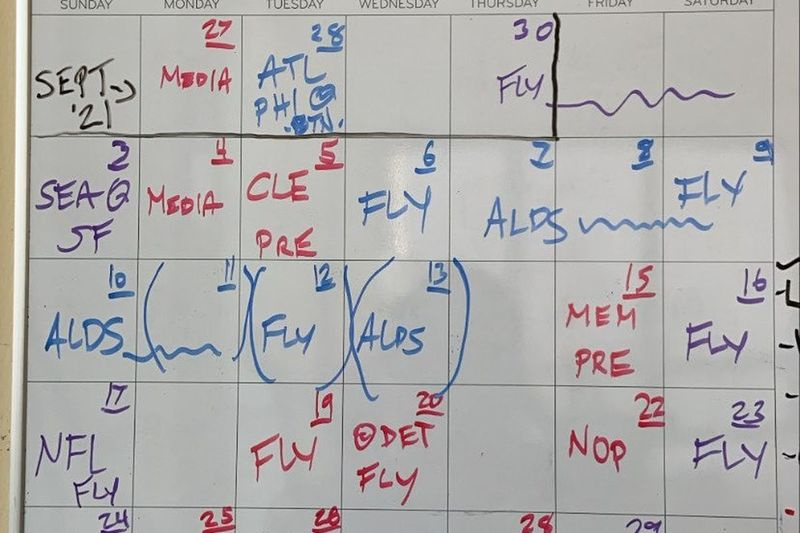 SUNDAY MONDAY TUESDAY WEDNESDAY THURSDAY FRIDAY SATURDAY
27 28 30
SEPT '21
MEDIA
ATL
PHI @
FLY
3 4 5 6 7 8 9
SEA @
SF
MEDIA
CLE
PRE
FLY
ALDS
FLY
10 11 12 13 15 16
ALDS
FLY
ALDS
MEM
PRE
FLY
17 19 20 22 23
NFL
FLY
FLY
@DET
FLY
NOP
FLY
24 25 26 28 29